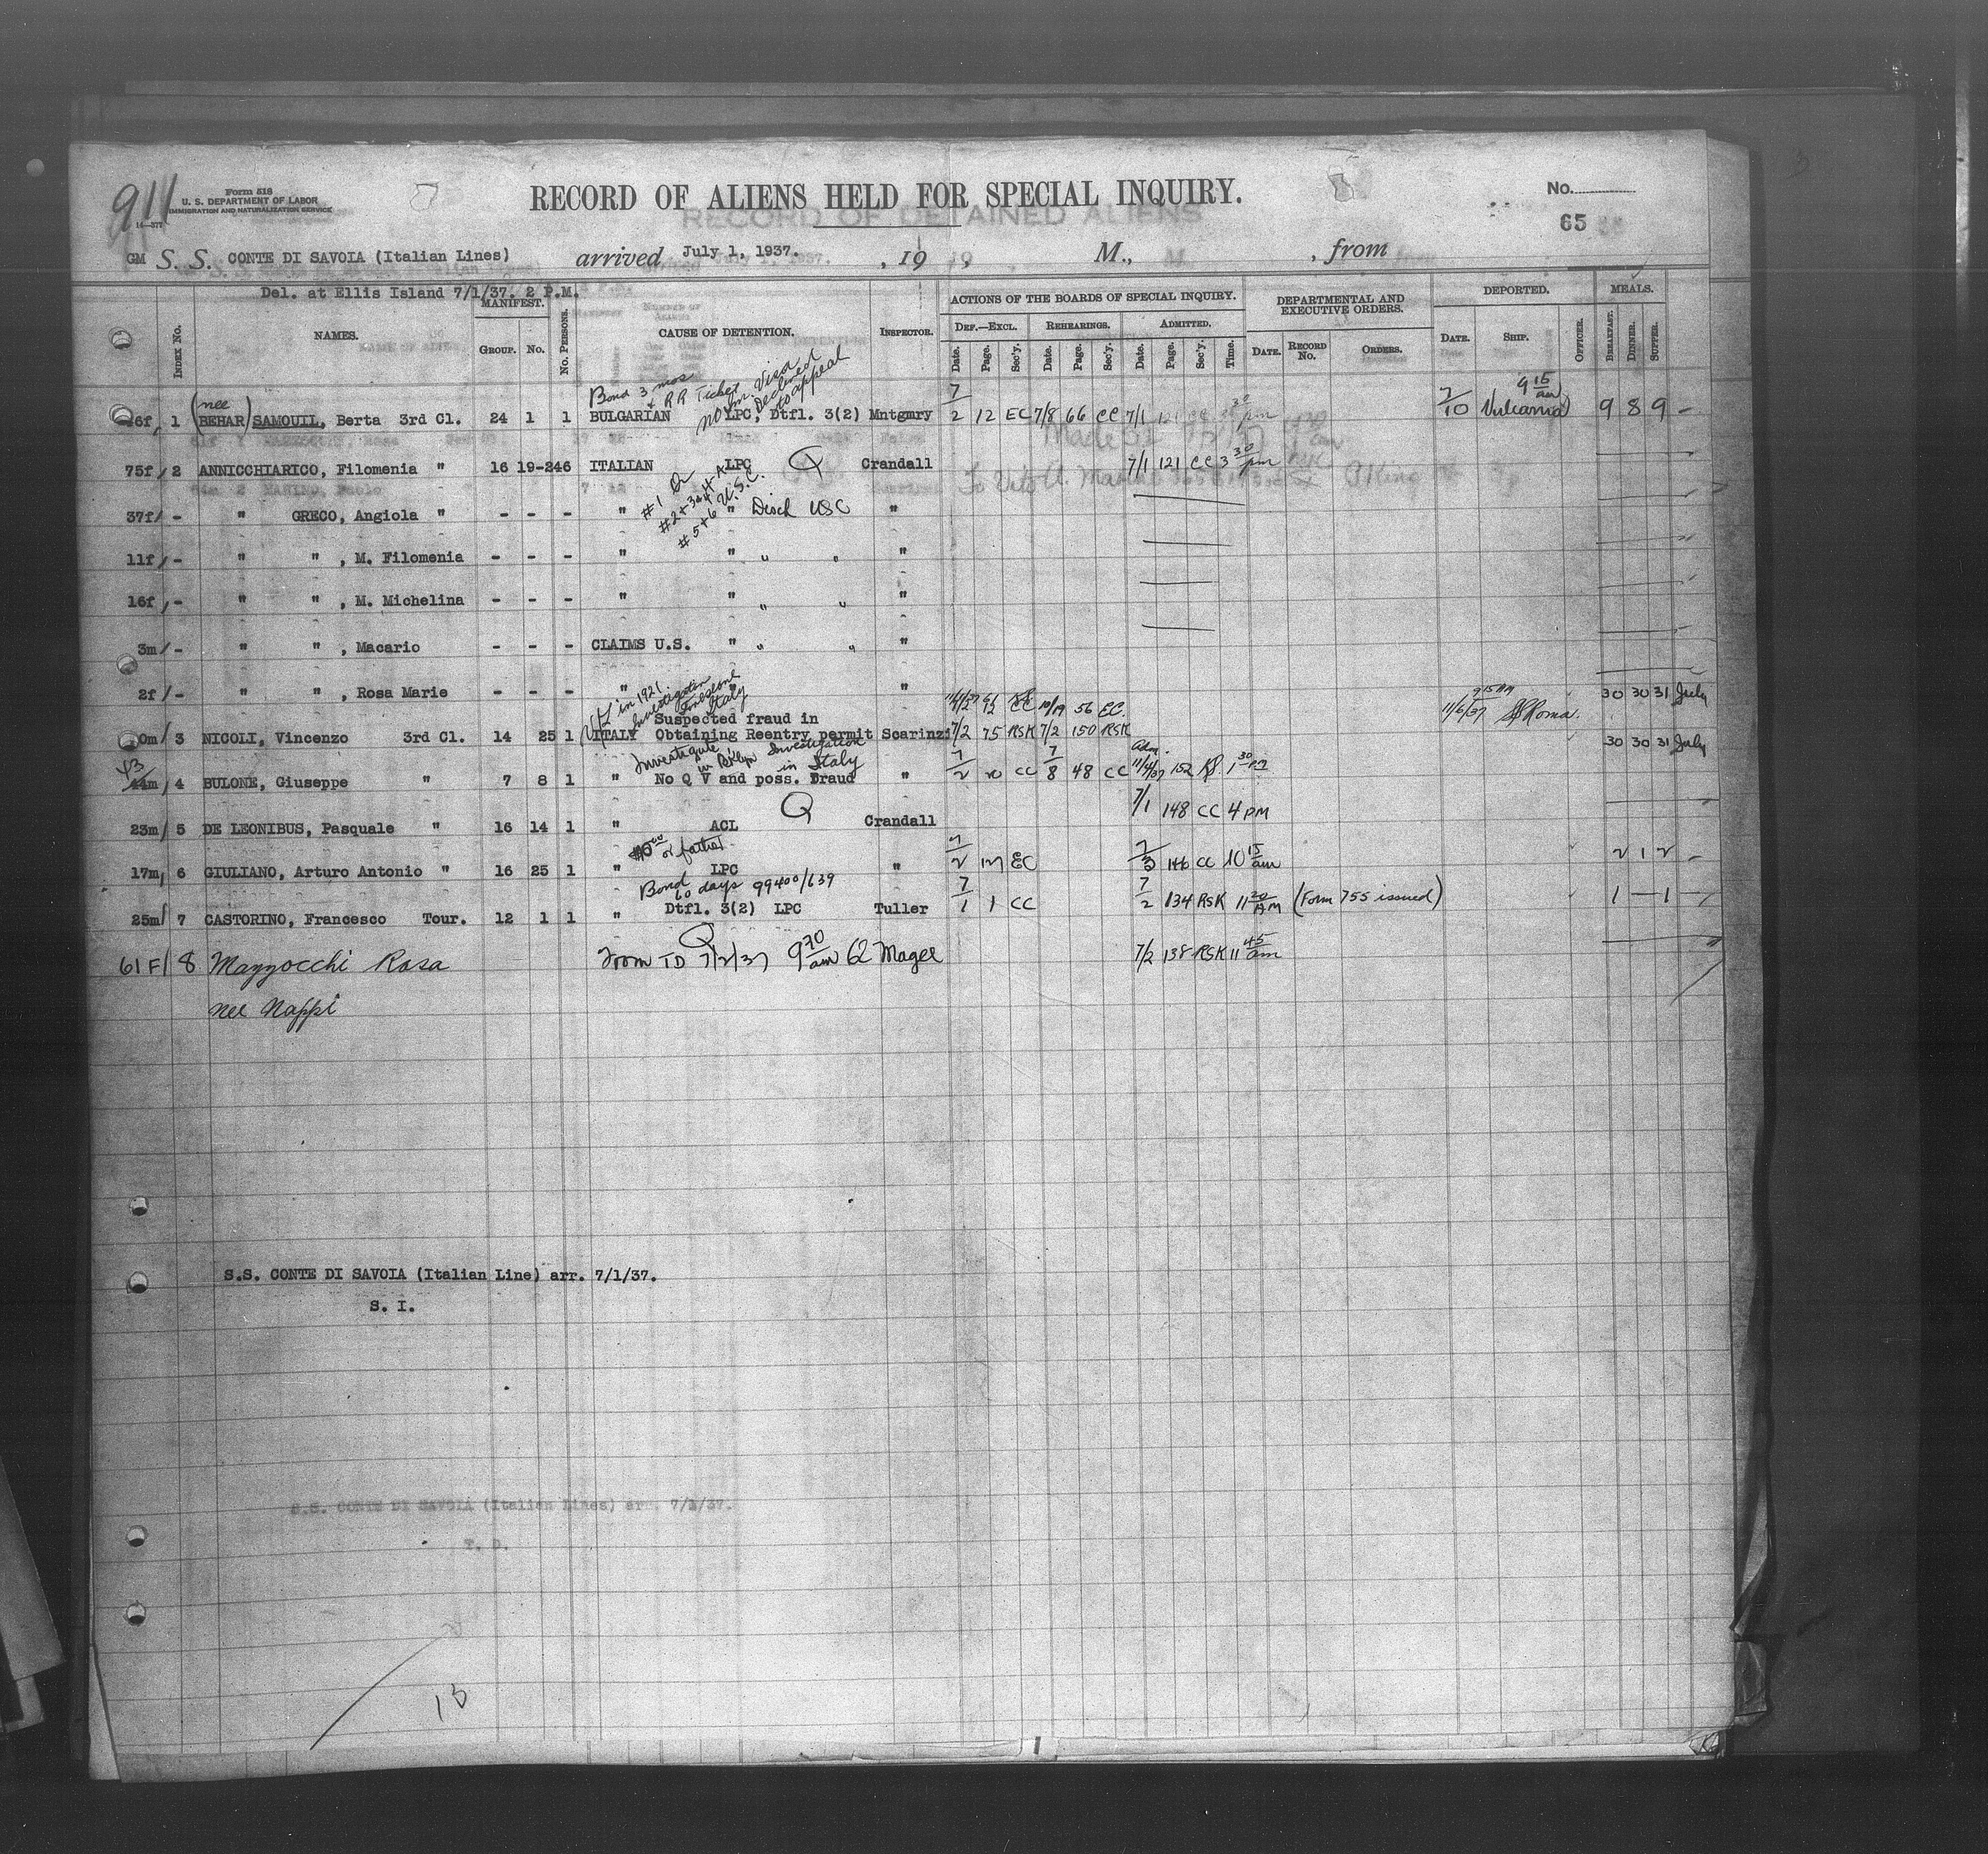 911
Form 518
U. S. DEPARTMENT OF LABOR
IMMIGRATION AND NATURALIZATION SERVICE
RECORD OF ALIENS HELD FOR SPECIAL INQUIRY.
RECORD OF DETAINED ALIENS
No.
65
GM S. S. CONTE DI SAVOIA (Italian Lines) arrived July 1, 1937. , 19 , M., , from
Del. at Ellis Island 7/1/37. 2 P.M.
INDEX No. NAMES. MANIFEST. GROUP. No. No. PERSONS. CAUSE OF DETENTION. INSPECTOR. ACTIONS OF THE BOARDS OF SPECIAL INQUIRY. DEF.—EXCL. Date. Page. Sec'y. REHEARINGS. Date. Page. Sec'y. ADMITTED. Date. Page. Sec'y. Time. DEPARTMENTAL AND EXECUTIVE ORDERS. DATE. RECORD No. ORDERS. DEPORTED. DATE. SHIP. OFFICER. MEALS. BREAKFAST. DINNER. SUPPER.
Bond 3 mos & RR Ticket
no Im. Visa
Declined to appeal
6f, 1 (nee BEHAR) SAMOUIL, Berta 3rd Cl. 24 1 1 BULGARIAN LPC, Dtfl. 3(2) Mntgmry 7/2 12 EC 7/8 66 CC 7/1 121 7/10 Vulcania 9 15 am 9 8 9 -
75f, 2 ANNICCHIARICO, Filomenia " 16 19-24 6 ITALIAN LPC Q Crandall 7/1 121 CC 3 30 pm
#1 Or
#2+3
#5+6 U.S.C.
37f/ - " GRECO, Angiola " - - - " " Disch USC "
11f/ - " " , M. Filomenia - - - " " " " "
16f, - " " , M. Michelina - - - " " " " "
3m/ - " " , Macario - - - CLAIMS U.S. " " " "
2f/ - " " , Rosa Marie - - - " "
in 1921. Investigation Italy
Suspected fraud in
0m/ 3 NICOLI, Vincenzo 3rd Cl. 14 25 1 ITALY Obtaining Reentry permit Scarinzi 7/2 75 RSK 7/2 150 RSK 10/19 56 EC. 11/6/37 9 15 AM SS Roma. 30 30 31 July
Investigate in Bklyn Investigation in Italy
43
44m, 4 BULONE, Giuseppe " 7 8 1 " No Q V and poss. Fraud " 7/2 20 CC 7/8 48 CC Adm. 11/4/37 152 1 30 PM 30 30 31 July
23m/ 5 DE LEONIBUS, Pasquale " 16 14 1 " ACL Q Crandall 7/1 148 CC 4 PM
or father.
17m, 6 GIULIANO, Arturo Antonio " 16 25 1 " LPC " 7/2 127 EC 7/3 146 CC 10 15 am 2 1 2 -
Bond 60 days 99400/639
25m/ 7 CASTORINO, Francesco Tour. 12 1 1 " Dtfl. 3(2) LPC Tuller 7/1 1 CC 7/2 134 RSK 11 20 AM (Form 755 issued) 1 - 1 -
61 F/ 8 Mazzocchi Rosa From TD 7/2/37 9 am Q Magee 7/2 138 RSK 11 45 am
nee Nappi
S.S. CONTE DI SAVOIA (Italian Line) arr. 7/1/37.
S. I.
S.S. CONTE DI SAVOIA (Italian Lines) arr. 7/1/37.
T. D.
13